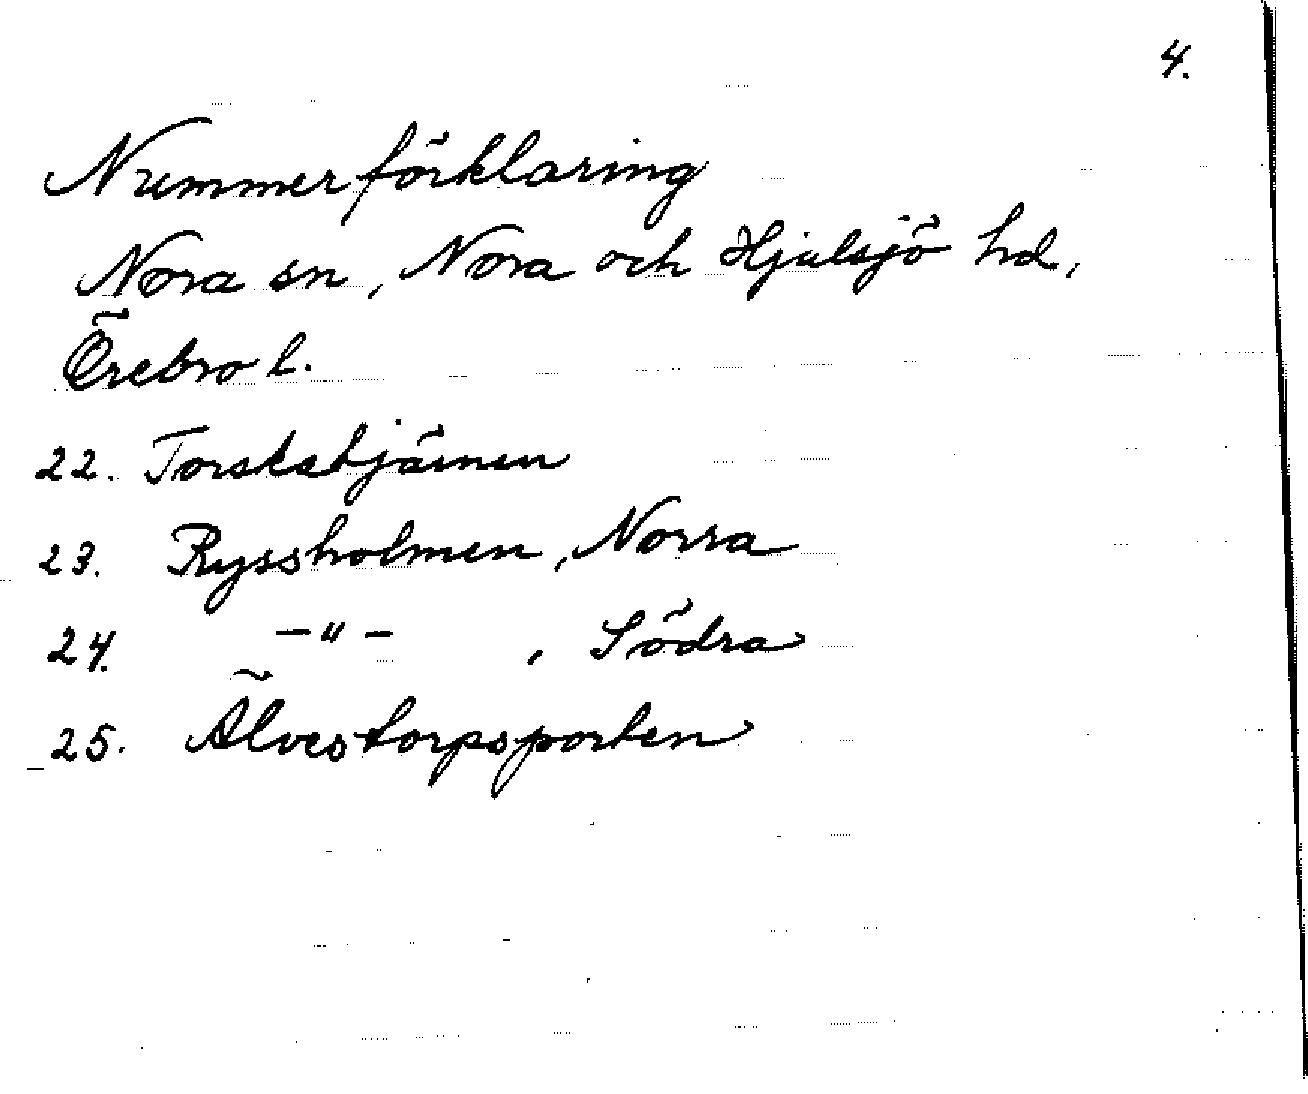 4.
Nummerförklaring
Nora sn, Nora och Hjulsjö hd,
Örebro l.
22. Torskabjärnen
23. Ryssholmen, Norra
24. -"- , Södra
25. Älvestorpsporten